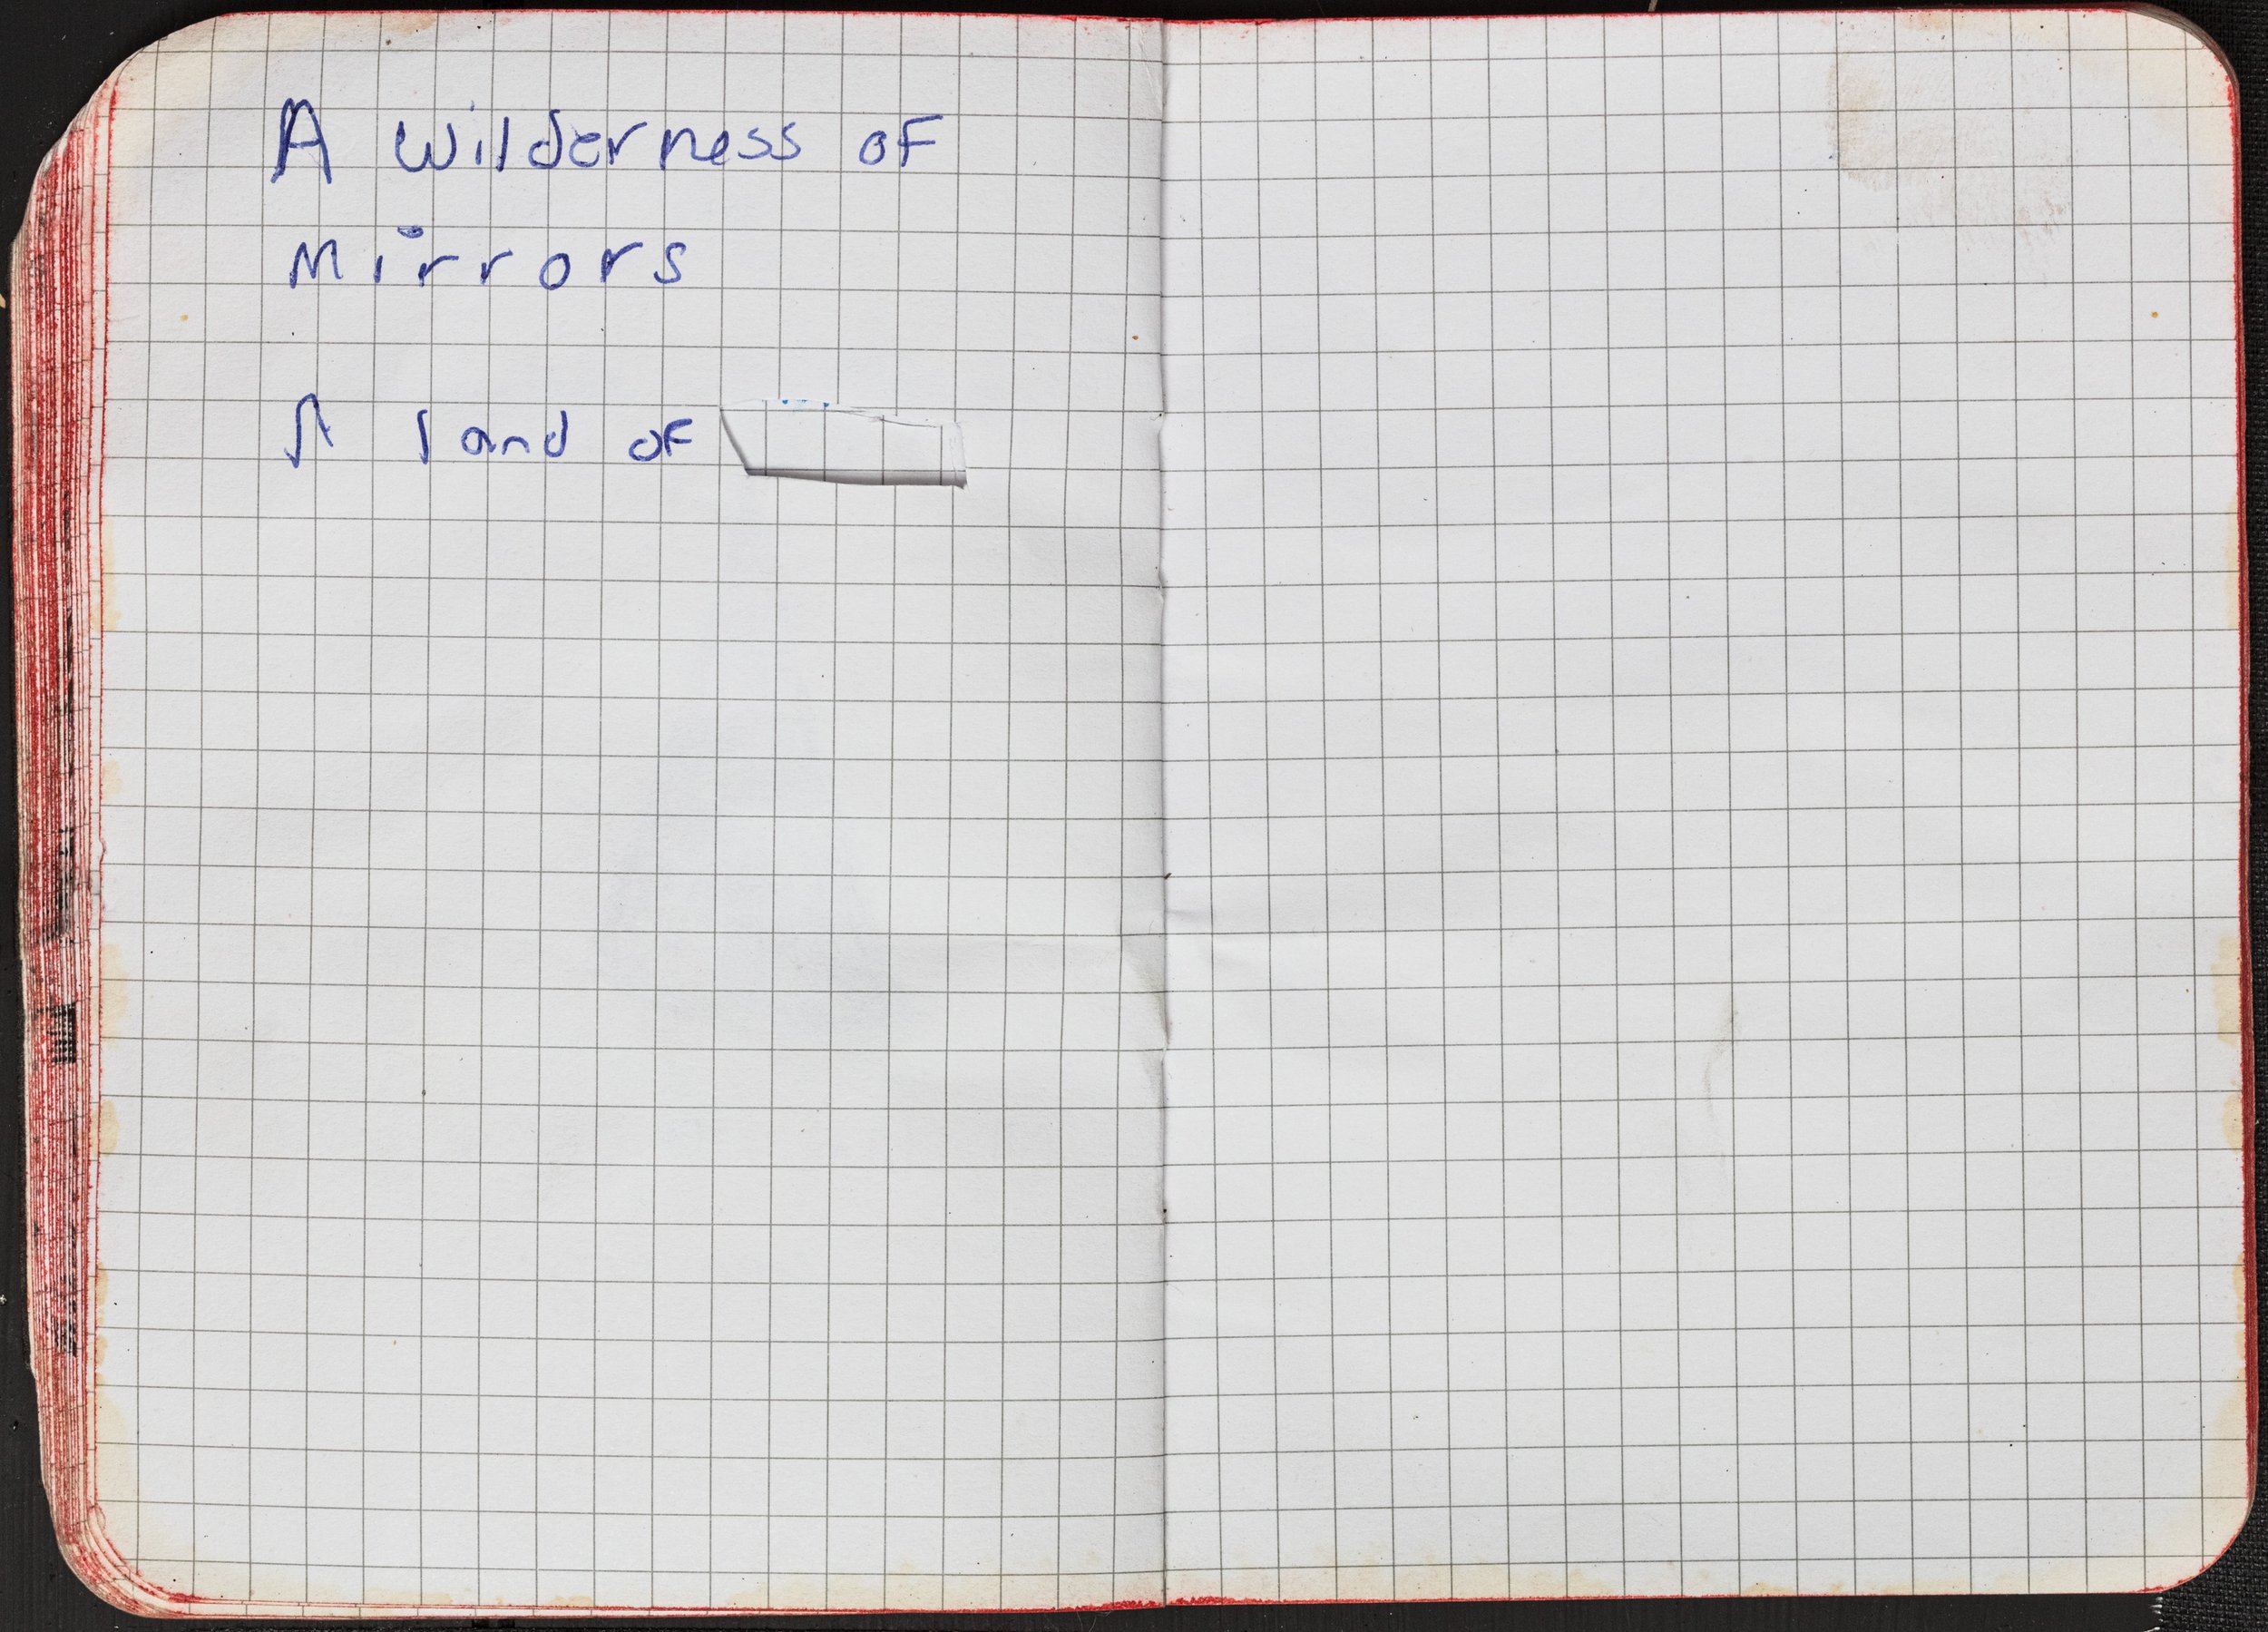 A wilderness of
Mirrors
A land of